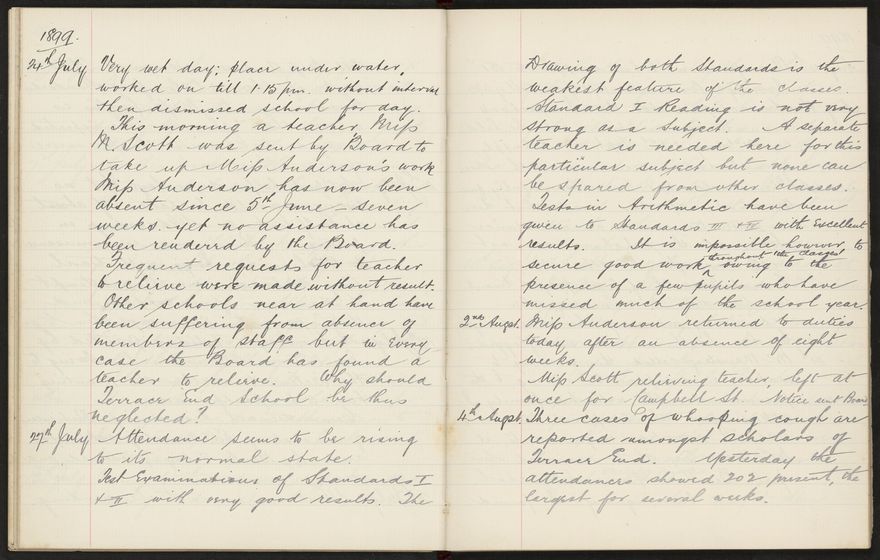 1899.
24th July Very wet day; place under water,
worked on till 1.15 p.m. without interval
then dismissed school for day.
This morning a teacher, Miss
M. Scott was sent by Board to
take up Miss Anderson's work
Miss Anderson has now been
absent since 5th June – seven
weeks – yet no assistance has
been renderrd by the Board.
Frequent requests for teacher
to relieve were made without result.
Other schools near at hand have
been suffering from absence of
members of staff but in every
case the Board has found a
teacher to relieve. Why should
Terrace End School be thus
neglected?
27th July Attendance seems to be rising
to its normal state.
Test Examinations of Standards I
& II with very good results. The
Drawing of both Standards is the
weakest feature of the classes.
Standard I Reading is not very
strong as a subject. A separate
teacher is needed here for this
particular subject but none can
be spared from other classes.
Tests in Arithmetic have been
given to Standards III & IV with Excellent
results. It is impossible however, to
throughout the classes
secure good work owing to the
presence of a few pupils who have
missed much of the school year.
2nd Augst. Miss Anderson returned to duties
today after an absence of eight
weeks.
Miss Scott relieving teacher, left at
once for Campbell St. Notice sent Board
4th Augst. Three cases of whooping cough are
reported amongst scholars of
Terrace End. Yesterday the
attendances showed 202 present, the
largest for several weeks.